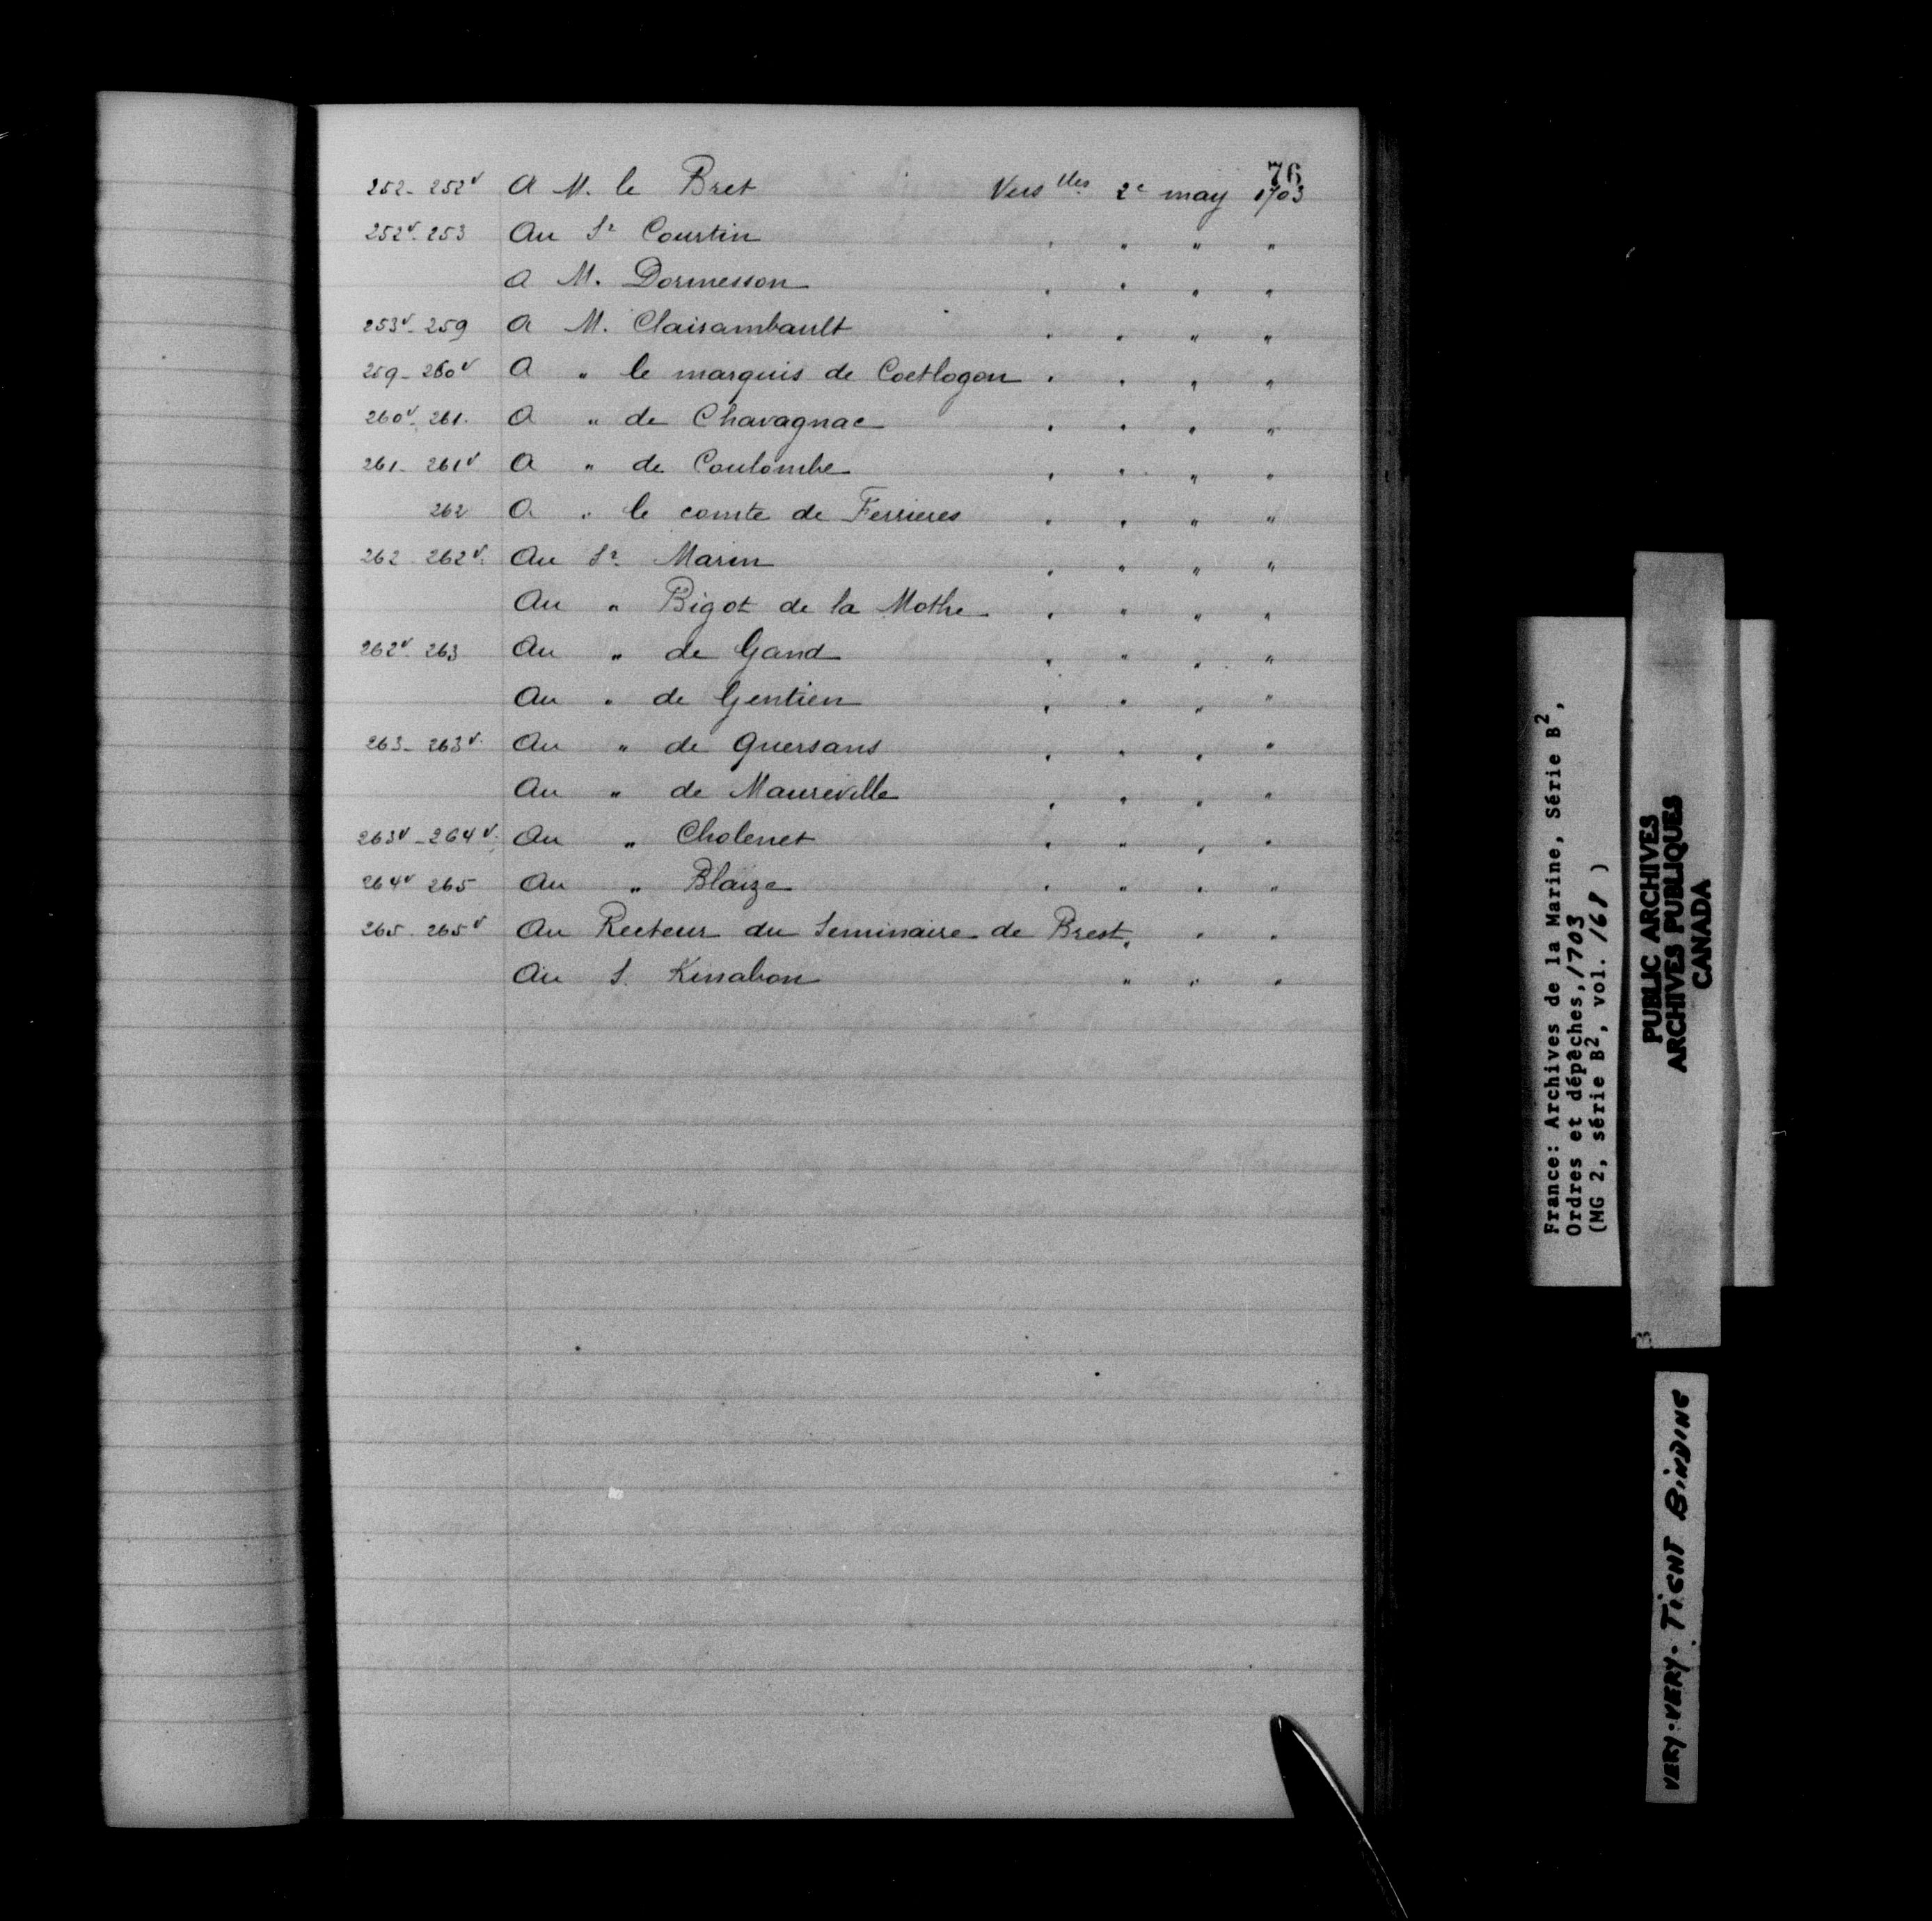 76
252 - 252v A M. le Bret Vers lles 2e may 1703
252v. 253 Au Sr Courtin " " " "
A M. Dormesson " " " "
253v. 259 A M. Clairambault " " " "
259 - 260v A " le marquis de Coetlogon " " " "
260v. 261. A " de Chavagnac " " " "
261 - 261v A " de Coulombe " " " "
262 A " le comte de Ferrieres " " " "
262 - 262v. Au Sr Marin " " " "
Au " Bigot de la Mothe " " " "
262v. 263 Au " de Gand " " " "
Au " de Gentien " " " "
263 - 263v. Au " de Quersans " " " "
Au " de Maureville " " " "
263v - 264v. Au " Cholenet " " " "
264v 265 Au " Blaize " " " "
265 - 265v Au Recteur du Seminaire de Brest " " "
Au S. Kinabon " " "
France: Archives de la Marine, Série B2,
Ordres et dépêches, 1703
(MG 2, série B2, vol. 168 )
PUBLIC ARCHIVES
ARCHIVES PUBLIQUES
CANADA
VERY. VERY. TIGHT BINDING